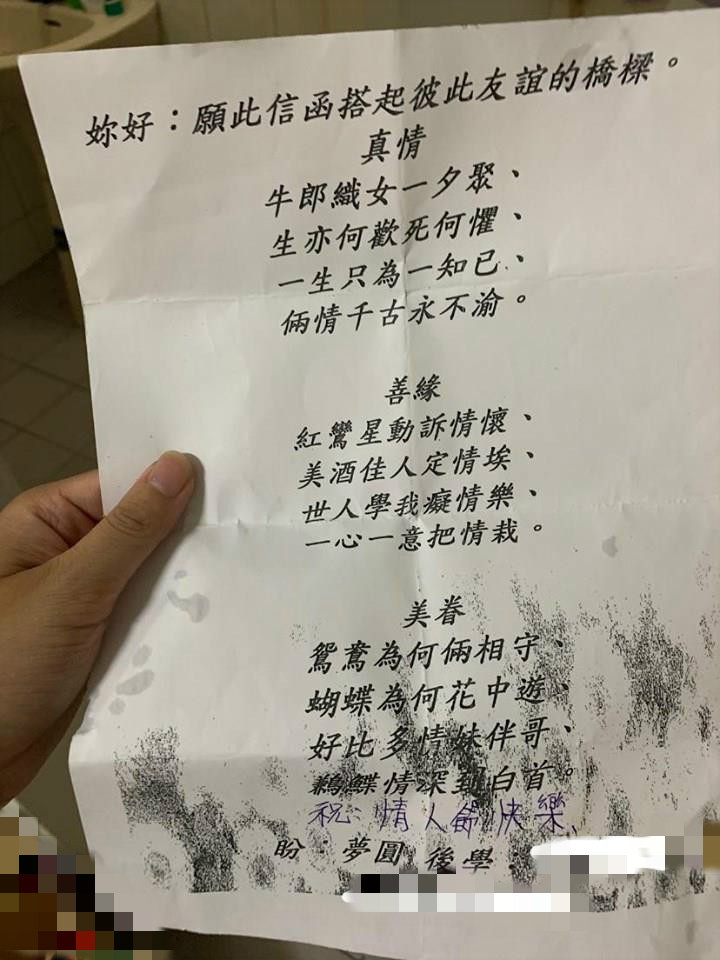 妳好：願此信函搭起彼此友誼的橋樑。
真情
牛郎織女一夕聚、
生亦何歡死何懼、
一生只為一知已、
倆情千古永不渝。
善緣
紅鸞星動訴情懷、
美酒佳人定情埃、
世人學我癡情樂、
一心一意把情栽。
美眷
鴛鴦為何倆相守、
蝴蝶為何花中遊、
好比多情妹伴哥、
鶼鰈情深到白首。
祝：情人節快樂、
盼：夢圓 後學：